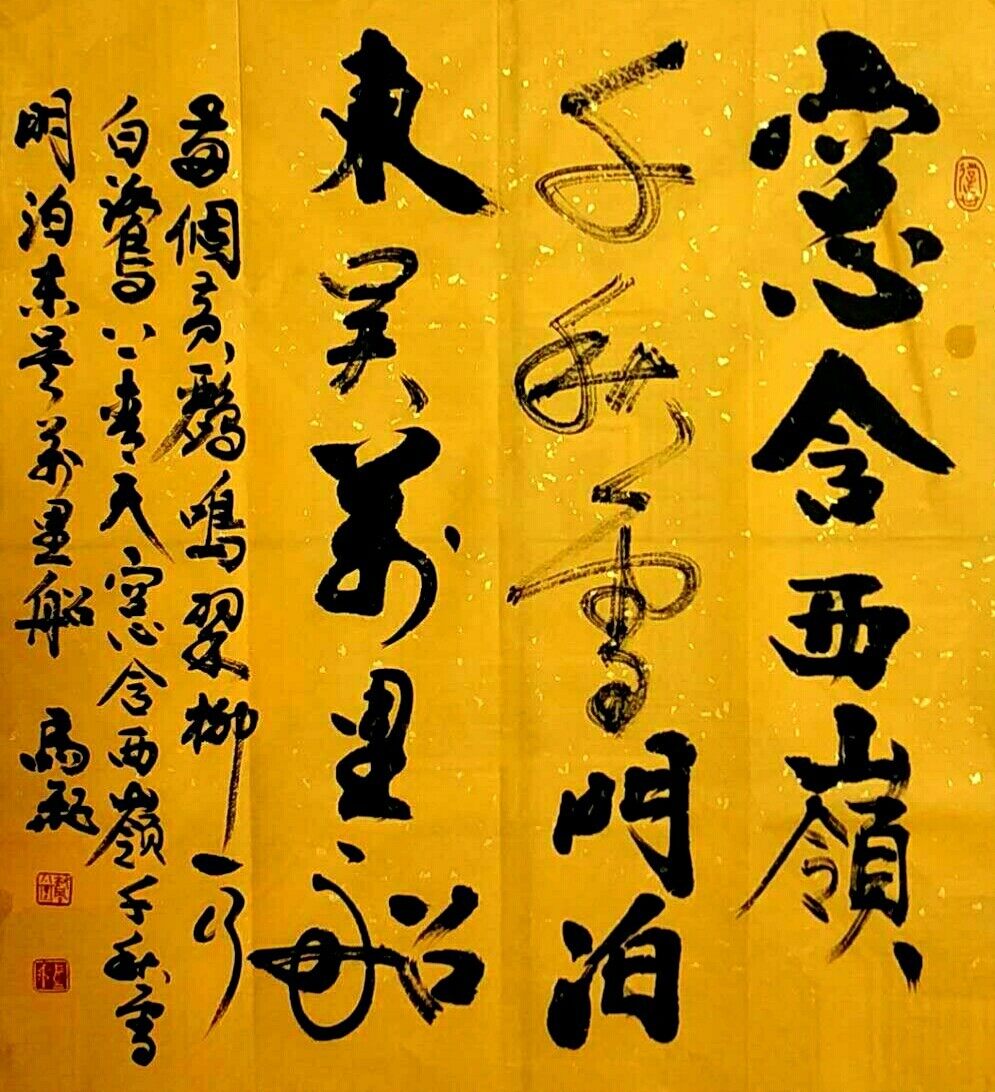 窓含西嶺
千秋雪門泊
東吳萬里船
兩個黃鸝鳴翠柳一行
白鷺上青天窓含西嶺千秋雪
門泊東吳萬里船